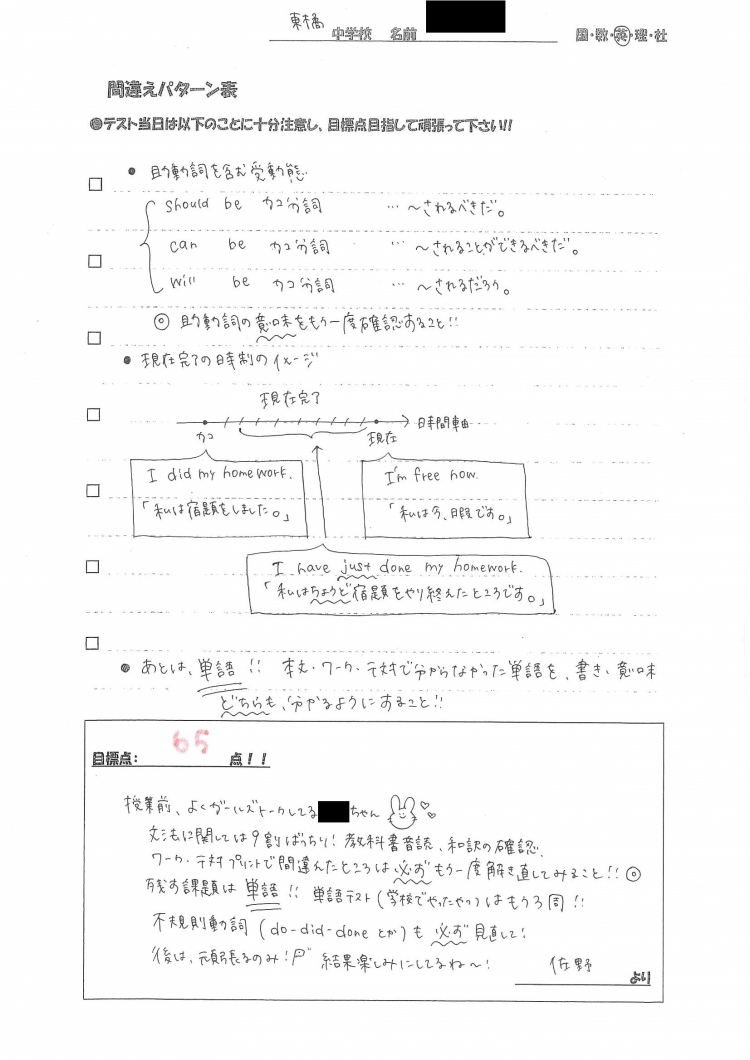 東橘 中学校 名前 国・数・英・理・社
間違えパターン表
◎テスト当日は以下のことに十分注意し、目標点目指して頑張って下さい!!
● 助動詞を含む受動態
should be カコ分詞 … ~されるべきだ。
can be カコ分詞 … ~されることができるべきだ。
will be カコ分詞 … ~されるだろう。
◎ 助動詞の意味をもう一度確認すること!!
● 現在完了の時制のイメージ
現在完了
カコ 現在 時間軸
I did my homework.
「私は宿題をしました。」
I'm free now.
「私は今、暇です。」
I have just done my homework.
「私はちょうど宿題をやり終えたところです。」
● あとは、単語!! 本文・ワーク・テ対で分からなかった単語を、書き・意味
どちらも、分かるようにすること!!
目標点: 65 点!!
授業前、よくガールズトークしてる ちゃん
文法に関しては9割ばっちり! 教科書音読、和訳の確認、
ワーク・テ対プリントで間違えたところは必ずもう一度解き直してみること!!◎
残す課題は単語!! 単語テスト(学校でやったやつ)はもう3周!!
不規則動詞 (do-did-done とか)も必ず見直して!
後は、頑張るのみ! 結果楽しみにしてるね~!
佐野 より